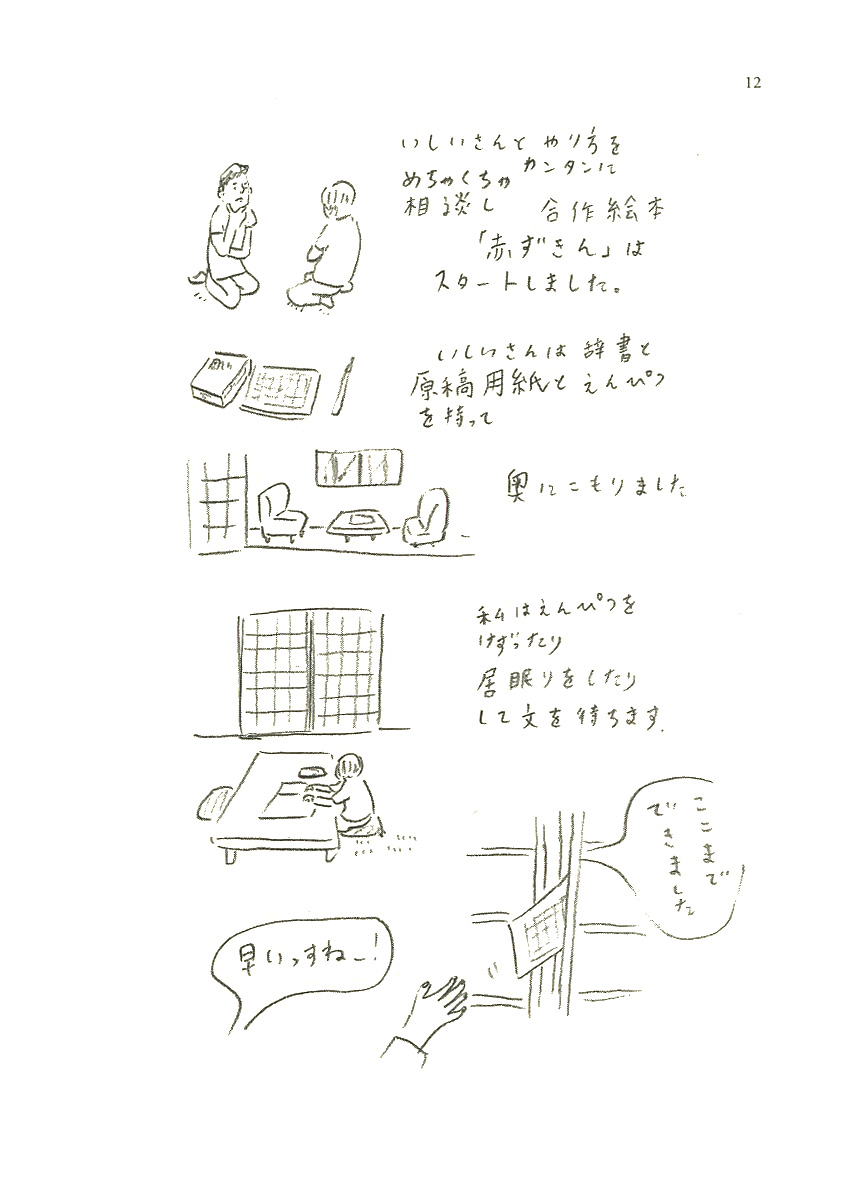 12
いしいさんと やり方を
めちゃくちゃ カンタンに
相談し 合作絵本
「赤ずきん」は
スタートしました。
いしいさんは 辞書と
原稿用紙と えんぴつ
を持って
奥にこもりました
私はえんぴつを
けずったり
居眠りをしたり
して文を待ちます.
ここまで
できました
早いっすねー!